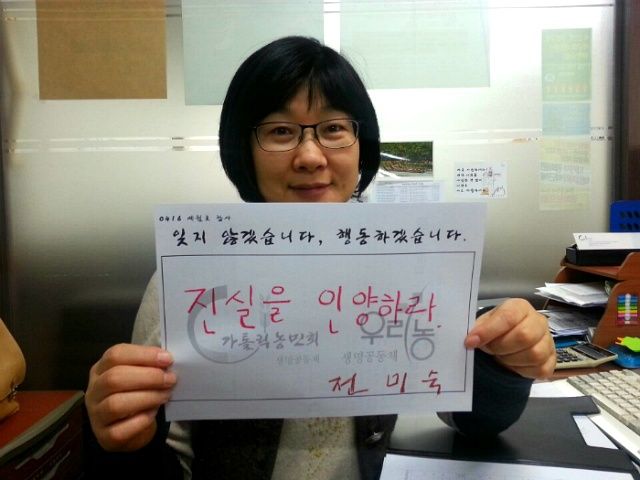 0416 세월호 참사
잊지 않겠습니다, 행동하겠습니다.
진실을 인양하라.
가톨릭농민회
생명공동체
우리농
생명공동체
전미숙